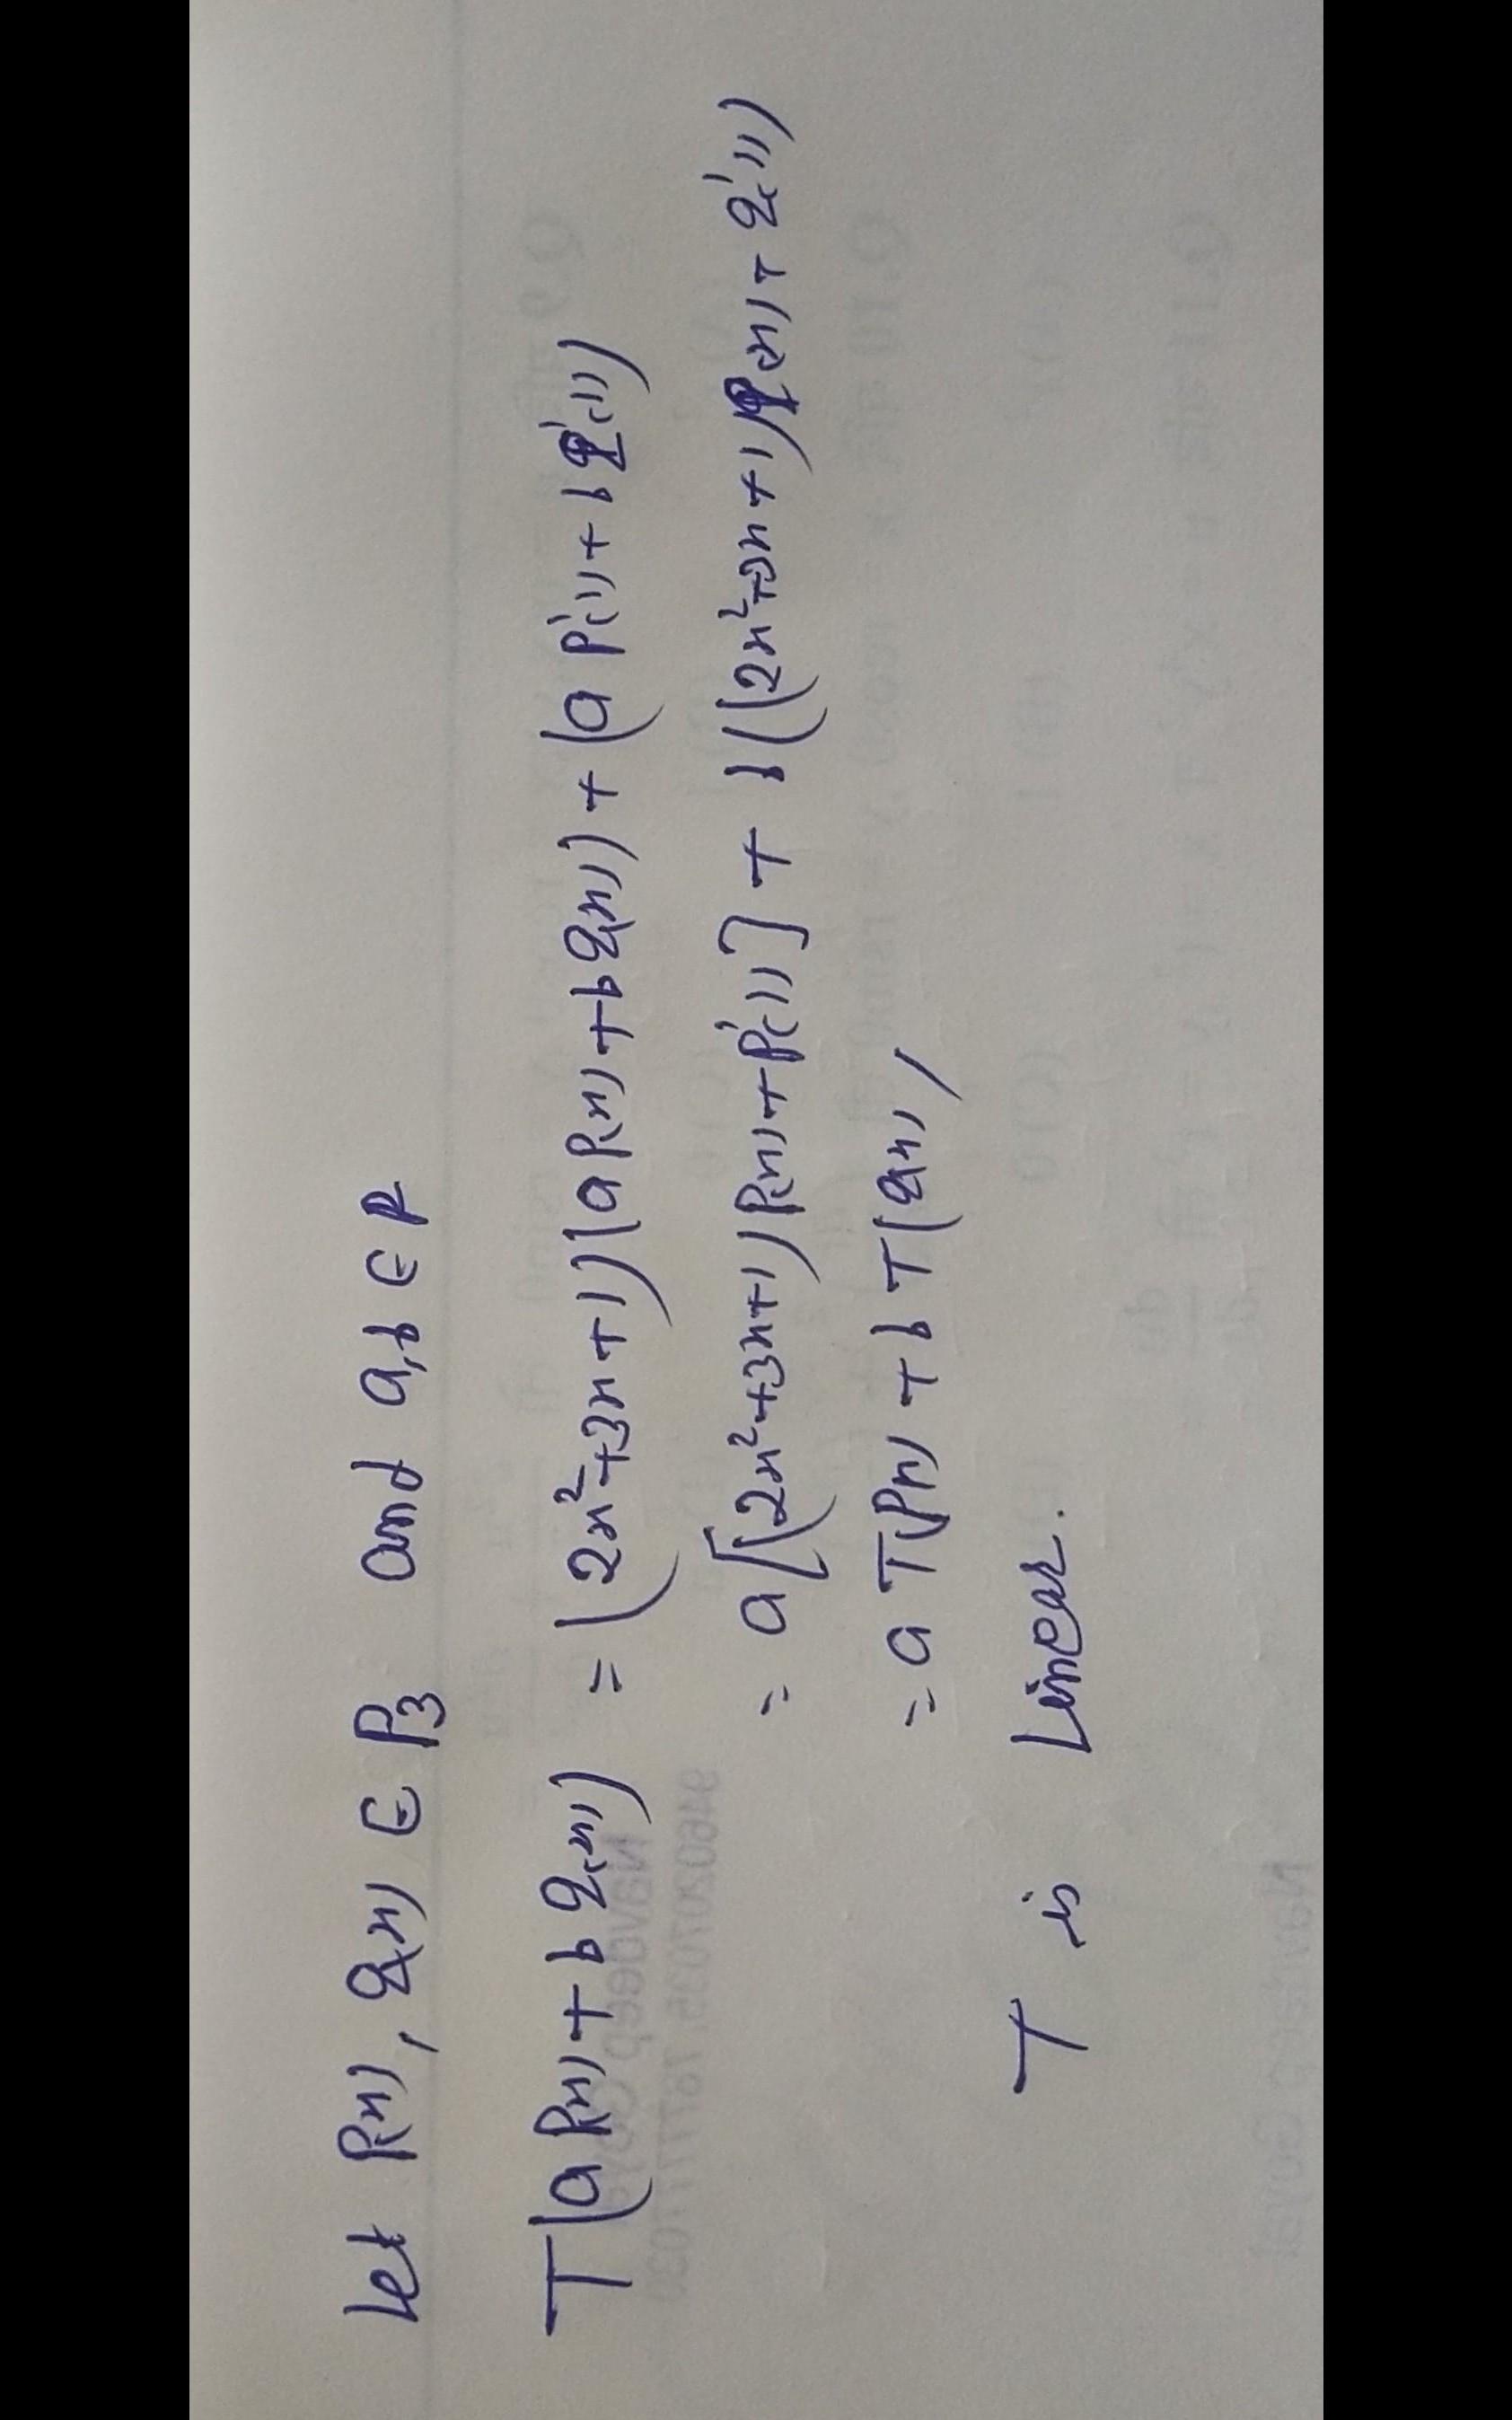 Let P(x), Q(x) ∈ P₃ and a,b ∈ R
T(a P(x) + b Q(x)) = (2x²+3x+1)(a P(x) + b Q(x)) + (a P'(1) + b Q'(1))
= a[(2x²+3x+1) P(x) + P'(1)] + b((2x²+3x+1) Q(x) + Q'(1))
= a T(P(x) + b T(Q(x)
T is Linear.